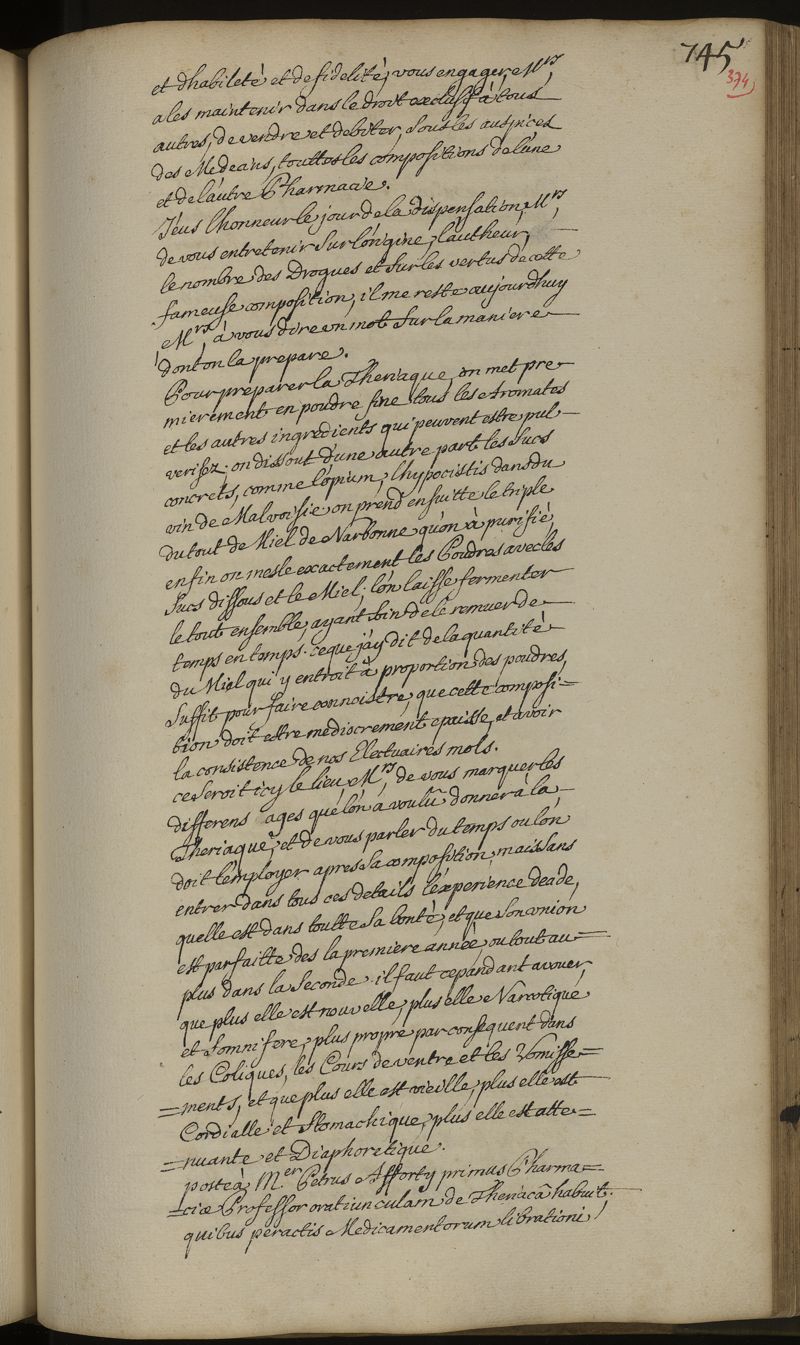 745
374
et dhabileté et de fidelité, vous engager, Mrs
a les maintenir dans le droit exclusif à tous
autres, de vendre et debiter, sous les auspices
des Medecins, touttes les compositions de lúne
et de láutre Pharmacie.
Jéus lhonneur le jour de la dispensation, Mrs,
de vous entretenir sur lórigine, láutheur,
le nombre des Drogues et sur les vertus de cette
fameuse composition, il me reste aujourdhuy
Mrs, à vous dire un mot sur la maniere
dont on la prepare.
Pour preparer la Theriaque, on met pre-
mierement en poudre fine tous les Aromates
et les autres ingredients qui peuvent estre pul-
verisez. on dissout dúne autre part les sucs
concrets, comme lópium, lhypocistis dans du
vin de Malvoisie. on prend ensuitte le triple
du tout de Miel de Narbonne quón à purifié,
enfin on mesle exactement les Poudres avec les
sucs dissous et le Miel; lón laisse fermenter
le tout ensemble, ayant soin de le remuer de
temps en temps. ce que jáy dit de la quantité
du Miel qui y entroit à proportion des poudres,
suffit pour faire connoistre, que cette composi=
tion doit estre mediocrement epaisse, et avoir
la consistence de nos Electuaires mols.
ce seroit icy le lieu, Mrs, de vous marquer les
differens ages que lón à voulu donner à la
Theriaque, et de vous parler du temps ou lón
doit lémployer apres sa composition, mais sans
entrer dans tous ces details léxperience decide,
quelle est dans toutte sa bonté, et que son union
est parfaitte des la premiere année, ou tout au=
plus dans la seconde. il faut cepandant avouer,
que plus elle est nouvelle, plus elle Narcotique
et somnifere, plus propre par consequent dans
les Coliques, les Cours de ventre et les Vomisse=
=ments, et que plus elle est vieille, plus elle est
Cordialle et Stomachique, plus elle est atte=
=nuante et Diaphoretique.
posteà Mer Petrus Afforty primus Pharma=
=ciæ Professor oratiunculam de Theriacâ habuit;
quibus peractis Medicamentorum librationi,